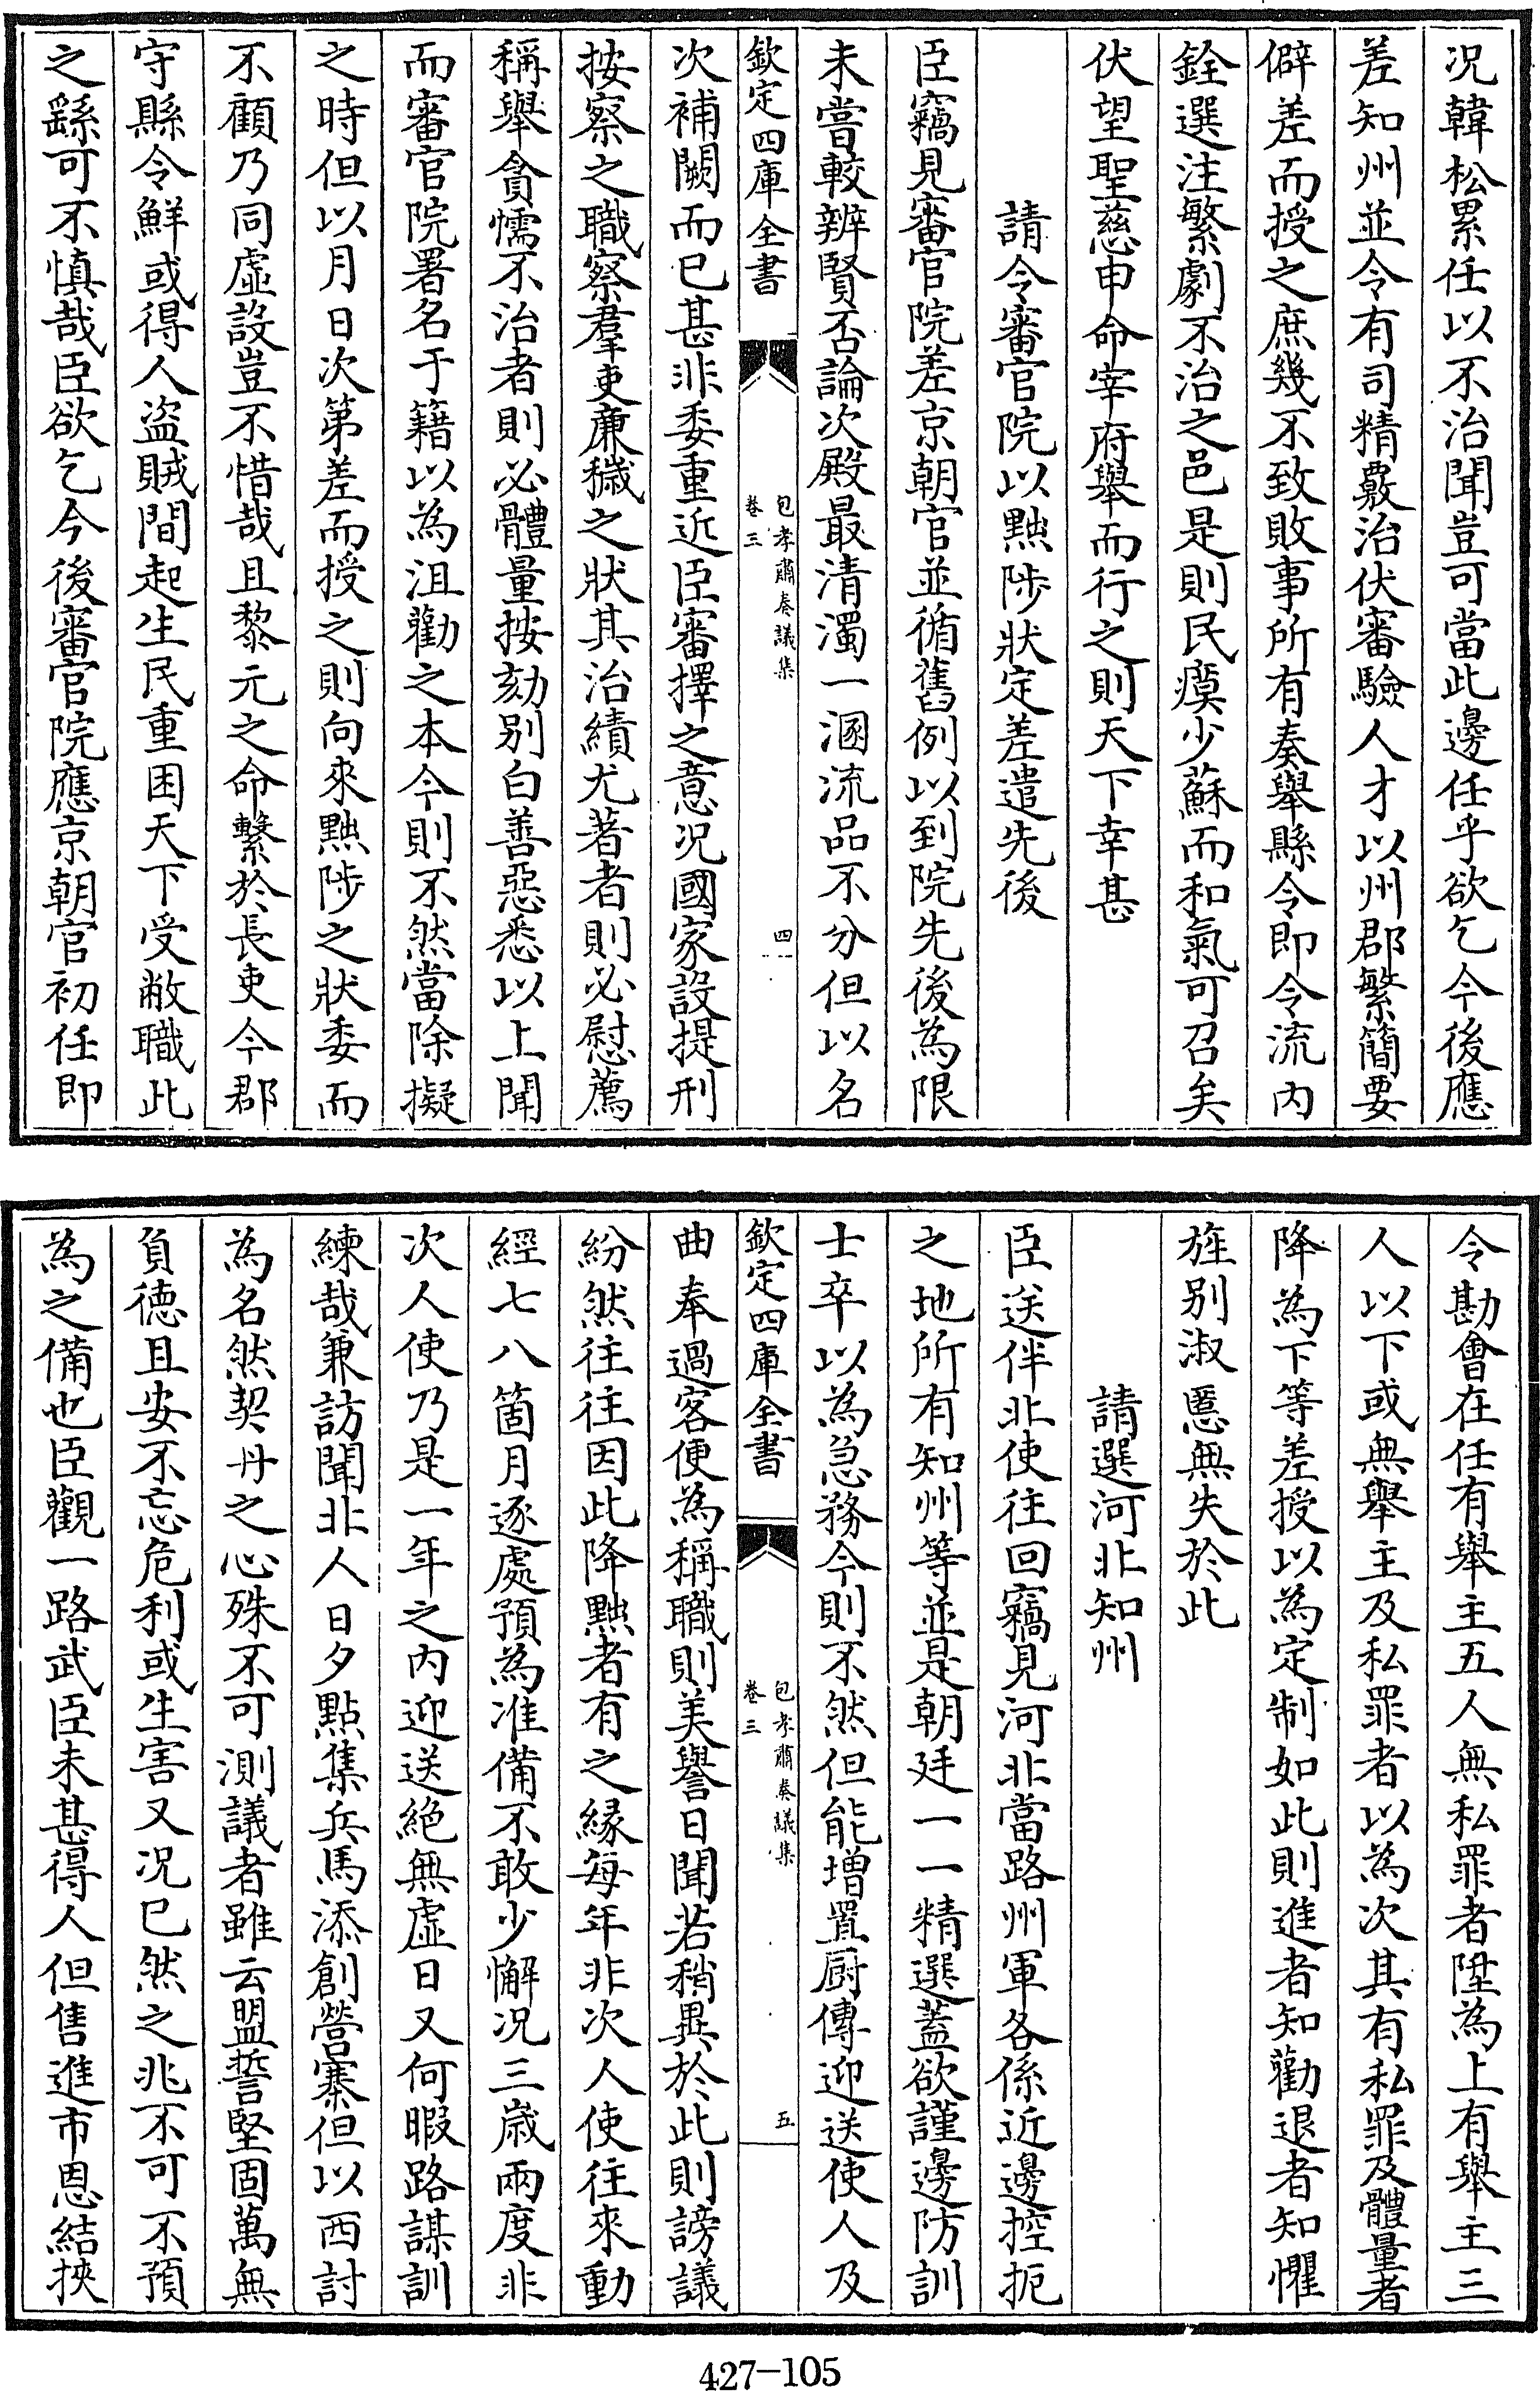 况韓松累任以不治聞豈可當此邊任乎欲乞今後應
差知州並令有司精覈治伏審驗人才以州郡繁簡要
僻差而授之庶幾不致敗事所有奏舉縣令即令流内
銓選注繁劇不治之邑是則民瘼少蘇而和氣可召矣
伏望聖慈申命宰府舉而行之則天下幸甚
請令審官院以黜陟狀定差遣先後
臣竊見審官院差京朝官並循舊例以到院先後為限
未嘗較辨賢否論次殿最清濁一溷流品不分但以名
欽定四庫全書
包孝肅奏議集
卷三
四
次補闕而已甚非委重近臣審擇之意况國家設提刑
按察之職察羣吏廉穢之狀其治績尤著者則必慰薦
稱舉貪懦不治者則必體量按劾别白善惡悉以上聞
而審官院署名于籍以為沮勸之本今則不然當除擬
之時但以月日次第差而授之則向來黜陟之狀委而
不顧乃同虛設豈不惜哉且黎元之命繫於長吏今郡
守縣令鮮或得人盜賊間起生民重困天下受敝職此
之繇可不慎哉臣欲乞今後審官院應京朝官初任即
令勘會在任有舉主五人無私罪者陞為上有舉主三
人以下或無舉主及私罪者以為次其有私罪及體量者
降為下等差授以為定制如此則進者知勸退者知懼
旌别淑慝無失於此
請選河北知州
臣送伴北使往回竊見河北當路州軍各係近邊控扼
之地所有知州等並是朝廷一一精選蓋欲謹邊防訓
士卒以為急務今則不然但能增置厨傳迎送使人及
欽定四庫全書
包孝肅奏議集
卷三
五
曲奉過客便為稱職則美譽日聞若稍異於此則謗議
紛然往往因此降黜者有之縁每年非次人使往來動
經七八箇月逐處預為准備不敢少懈况三歲兩度非
次人使乃是一年之内迎送絶無虛日又何暇路謀訓
練哉兼訪聞北人日夕點集兵馬添創營寨但以西討
為名然契丹之心殊不可測議者雖云盟誓堅固萬無
負德且安不忘危利或生害又况已然之兆不可不預
為之備也臣觀一路武臣未甚得人但售進市恩結挾
427-105